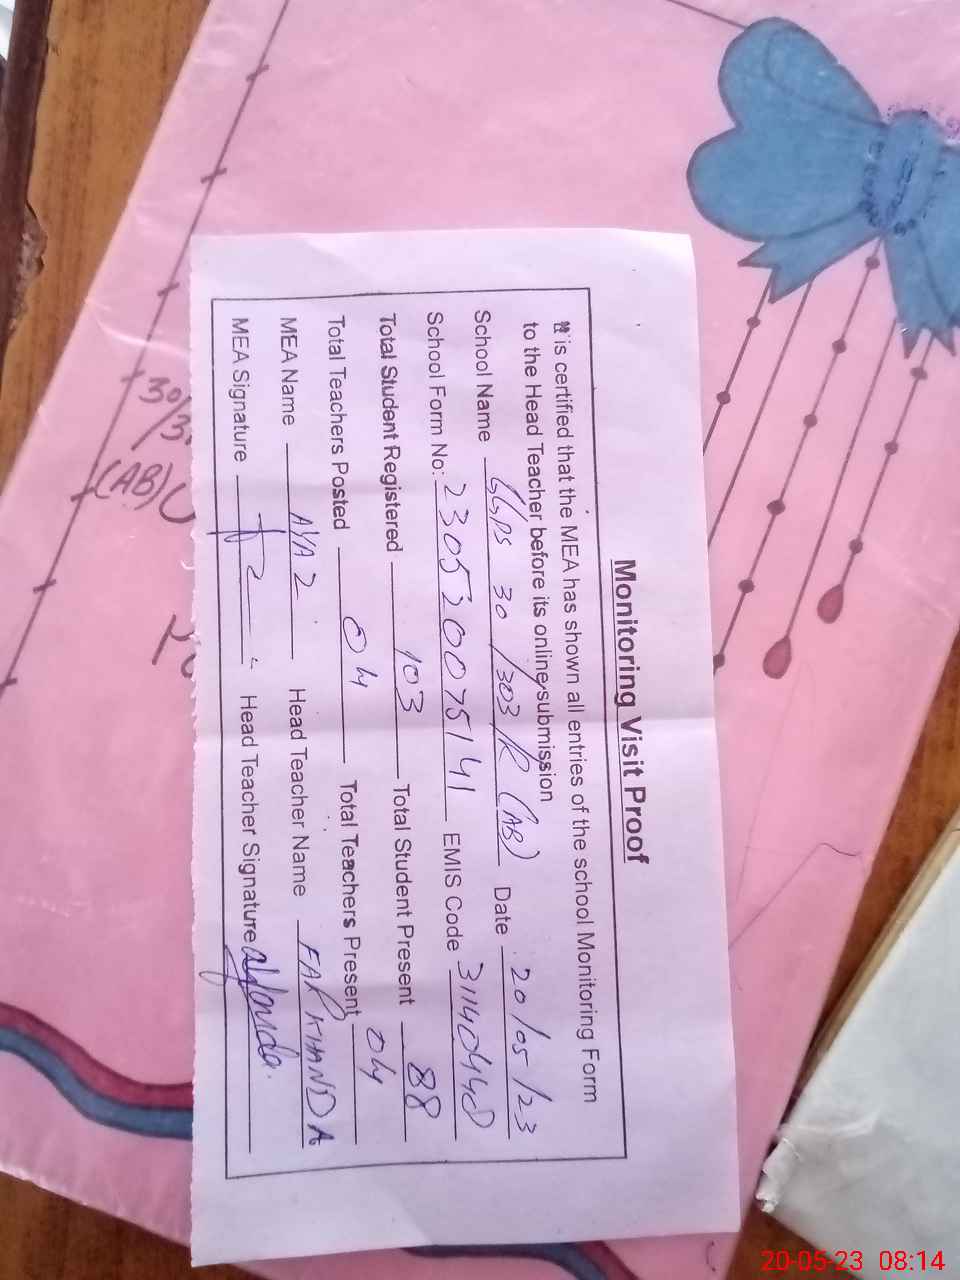 Monitoring Visit Proof
It is certified that the MEA has shown all entries of the school Monitoring Form
to the Head Teacher before its online submission
School Name GGPS 30/303/R (AB) Date 20/05/23
School Form No: 230520075141 EMIS Code 31140448
Total Student Registered 103 Total Student Present 88
Total Teachers Posted 04 Total Teachers Present 04
MEA Name AYAZ Head Teacher Name FARKHANDA
MEA Signature Head Teacher Signature
30/3
(AB)
20-05-23 08:14